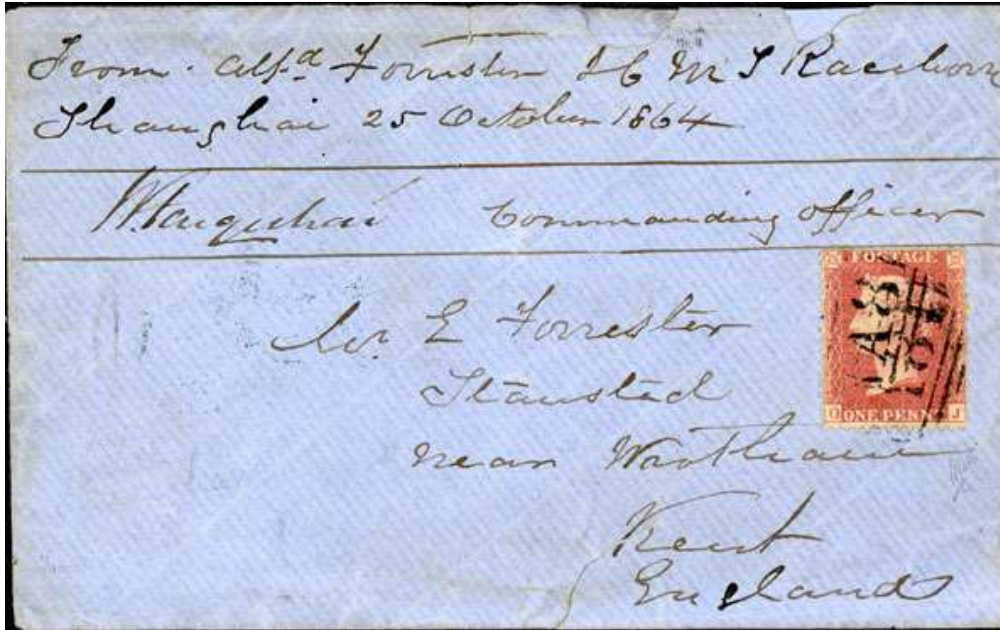 From. Alf.d Forrester H M S Racehorse
Shanghai 25 October 1864
Commanding Officer
POSTAGE
A
8
ONE PENNY
O J
Mr. E Forrester
Stansted
near Wrotham
Kent
England